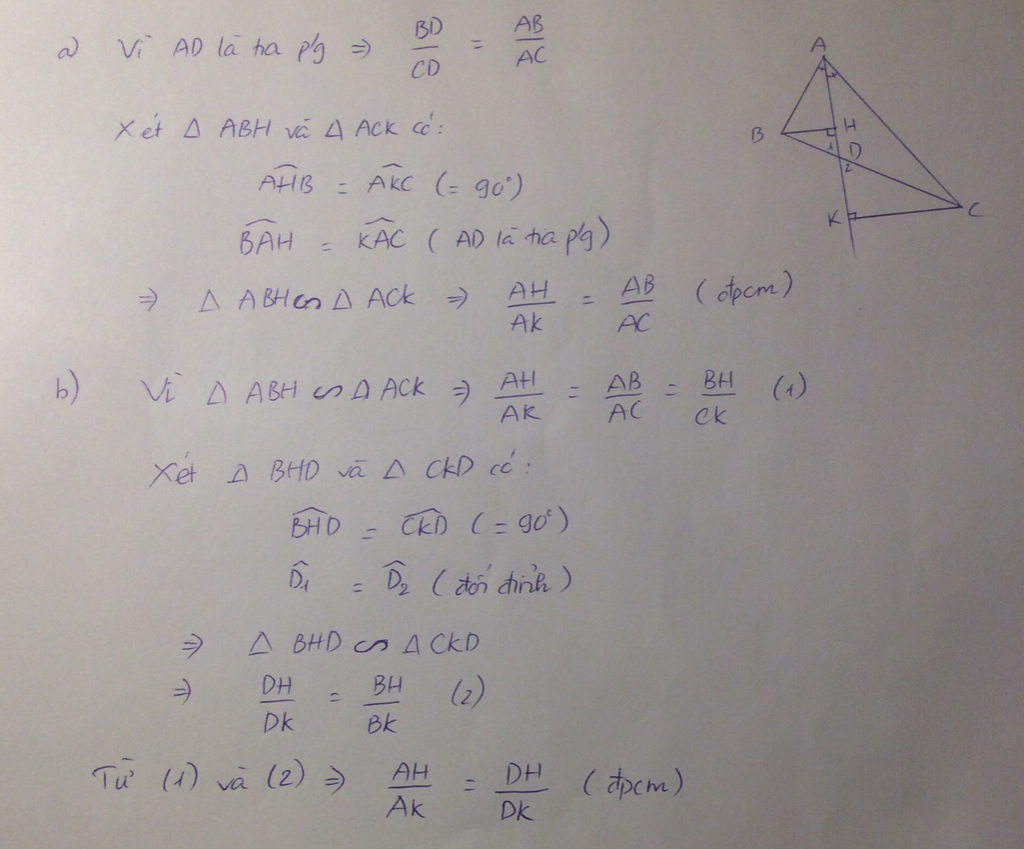 a) Vì AD là tia p/g ⇒ BD/CD = AB/AC
Xét Δ ABH và Δ ACK có:
AHB = AKC (= 90°)
BAH = KAC ( AD là tia p/g)
⇒ Δ ABH ∽ Δ ACK ⇒ AH/AK = AB/AC (đpcm)
b) Vì Δ ABH ∽ Δ ACK ⇒ AH/AK = AB/AC = BH/CK (1)
Xét Δ BHD và Δ CKD có:
BHD = CKD (= 90°)
D1 = D2 (đối đỉnh)
⇒ Δ BHD ∽ Δ CKD
⇒ DH/DK = BH/BK (2)
Từ (1) và (2) ⇒ AH/AK = DH/DK (đpcm)
A
B
H
1
D
2
K
C